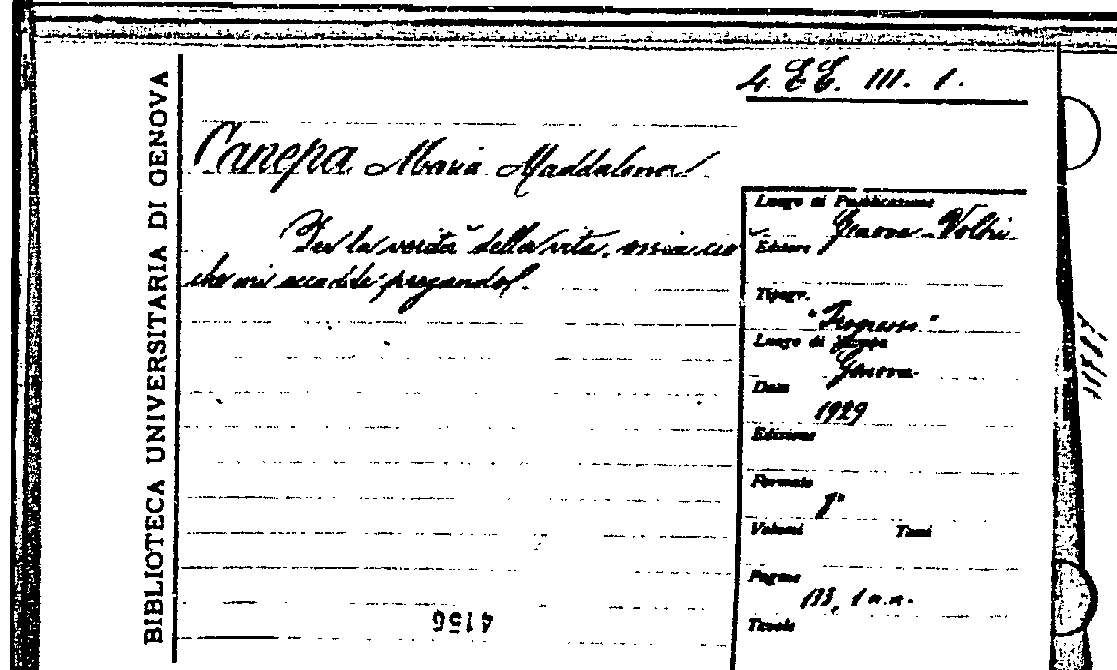 4. EE. III. 1.
BIBLIOTECA UNIVERSITARIA DI GENOVA
Canepa Maria Maddalena
Per la verità della vita, ossia ciò
che mi accadde pregando.
Luogo di Pubblicazione
Genova-Voltri
Editore
Tipogr.
"Progresso"
Luogo di stampa
Genova
Data
1929
Edizione
Formato
Volumi Tomi
Pagine
133, 1 n.n.
Tavole
4156